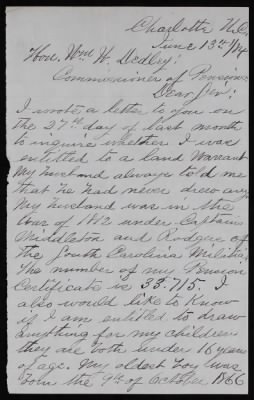 Charlotte N.C.
June 13th /84
Hon. Wm W. Dudley:
Commissioner of Pensions
Dear Sir:
I wrote a letter to you on
the 27th day of last month
to inquire whether I was
entitled to a land Warrant
My husband always told me
that he had never drew any
My husband was in the
war of 1812 under Captain
Middleton and Rodgers of
the South Carolina Militia.
The number of my Pension
Certificate is 33.715. I
also would like to know
if I am entitled to draw
anything for my children
they are both under 16 years
of age. My oldest boy was
born the 9th of October 1866